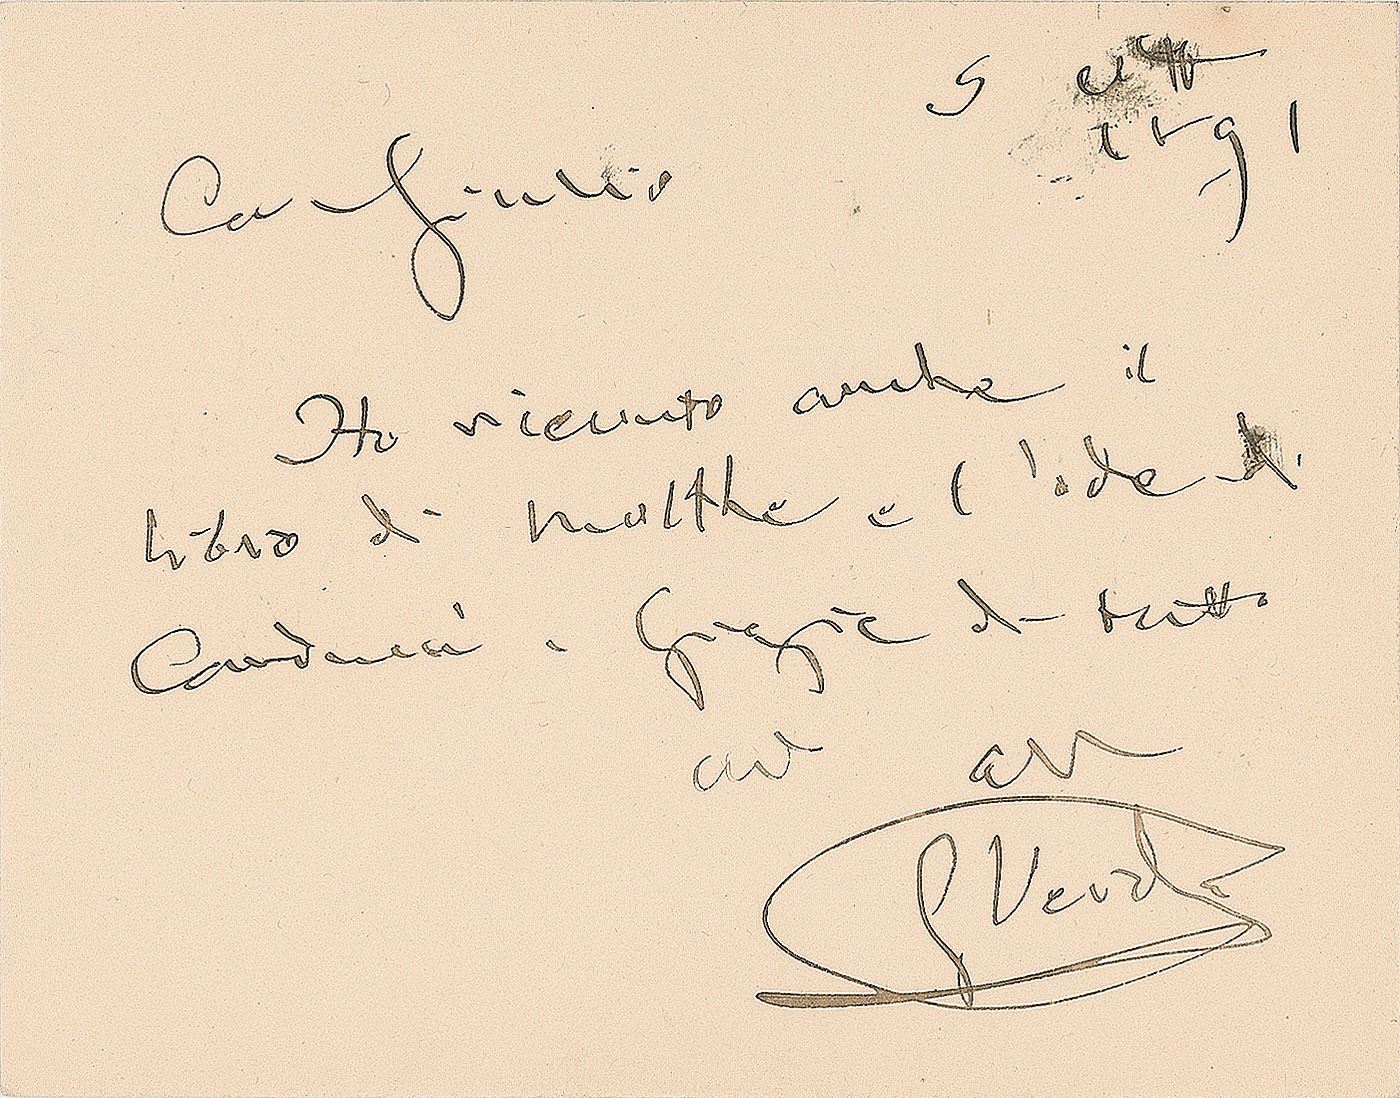 5 ott
1891
Car Giulio
Ho ricevuto anche il
libro di Molthe e l'ode di
Carducci. Grazie di tutto
G Verdi